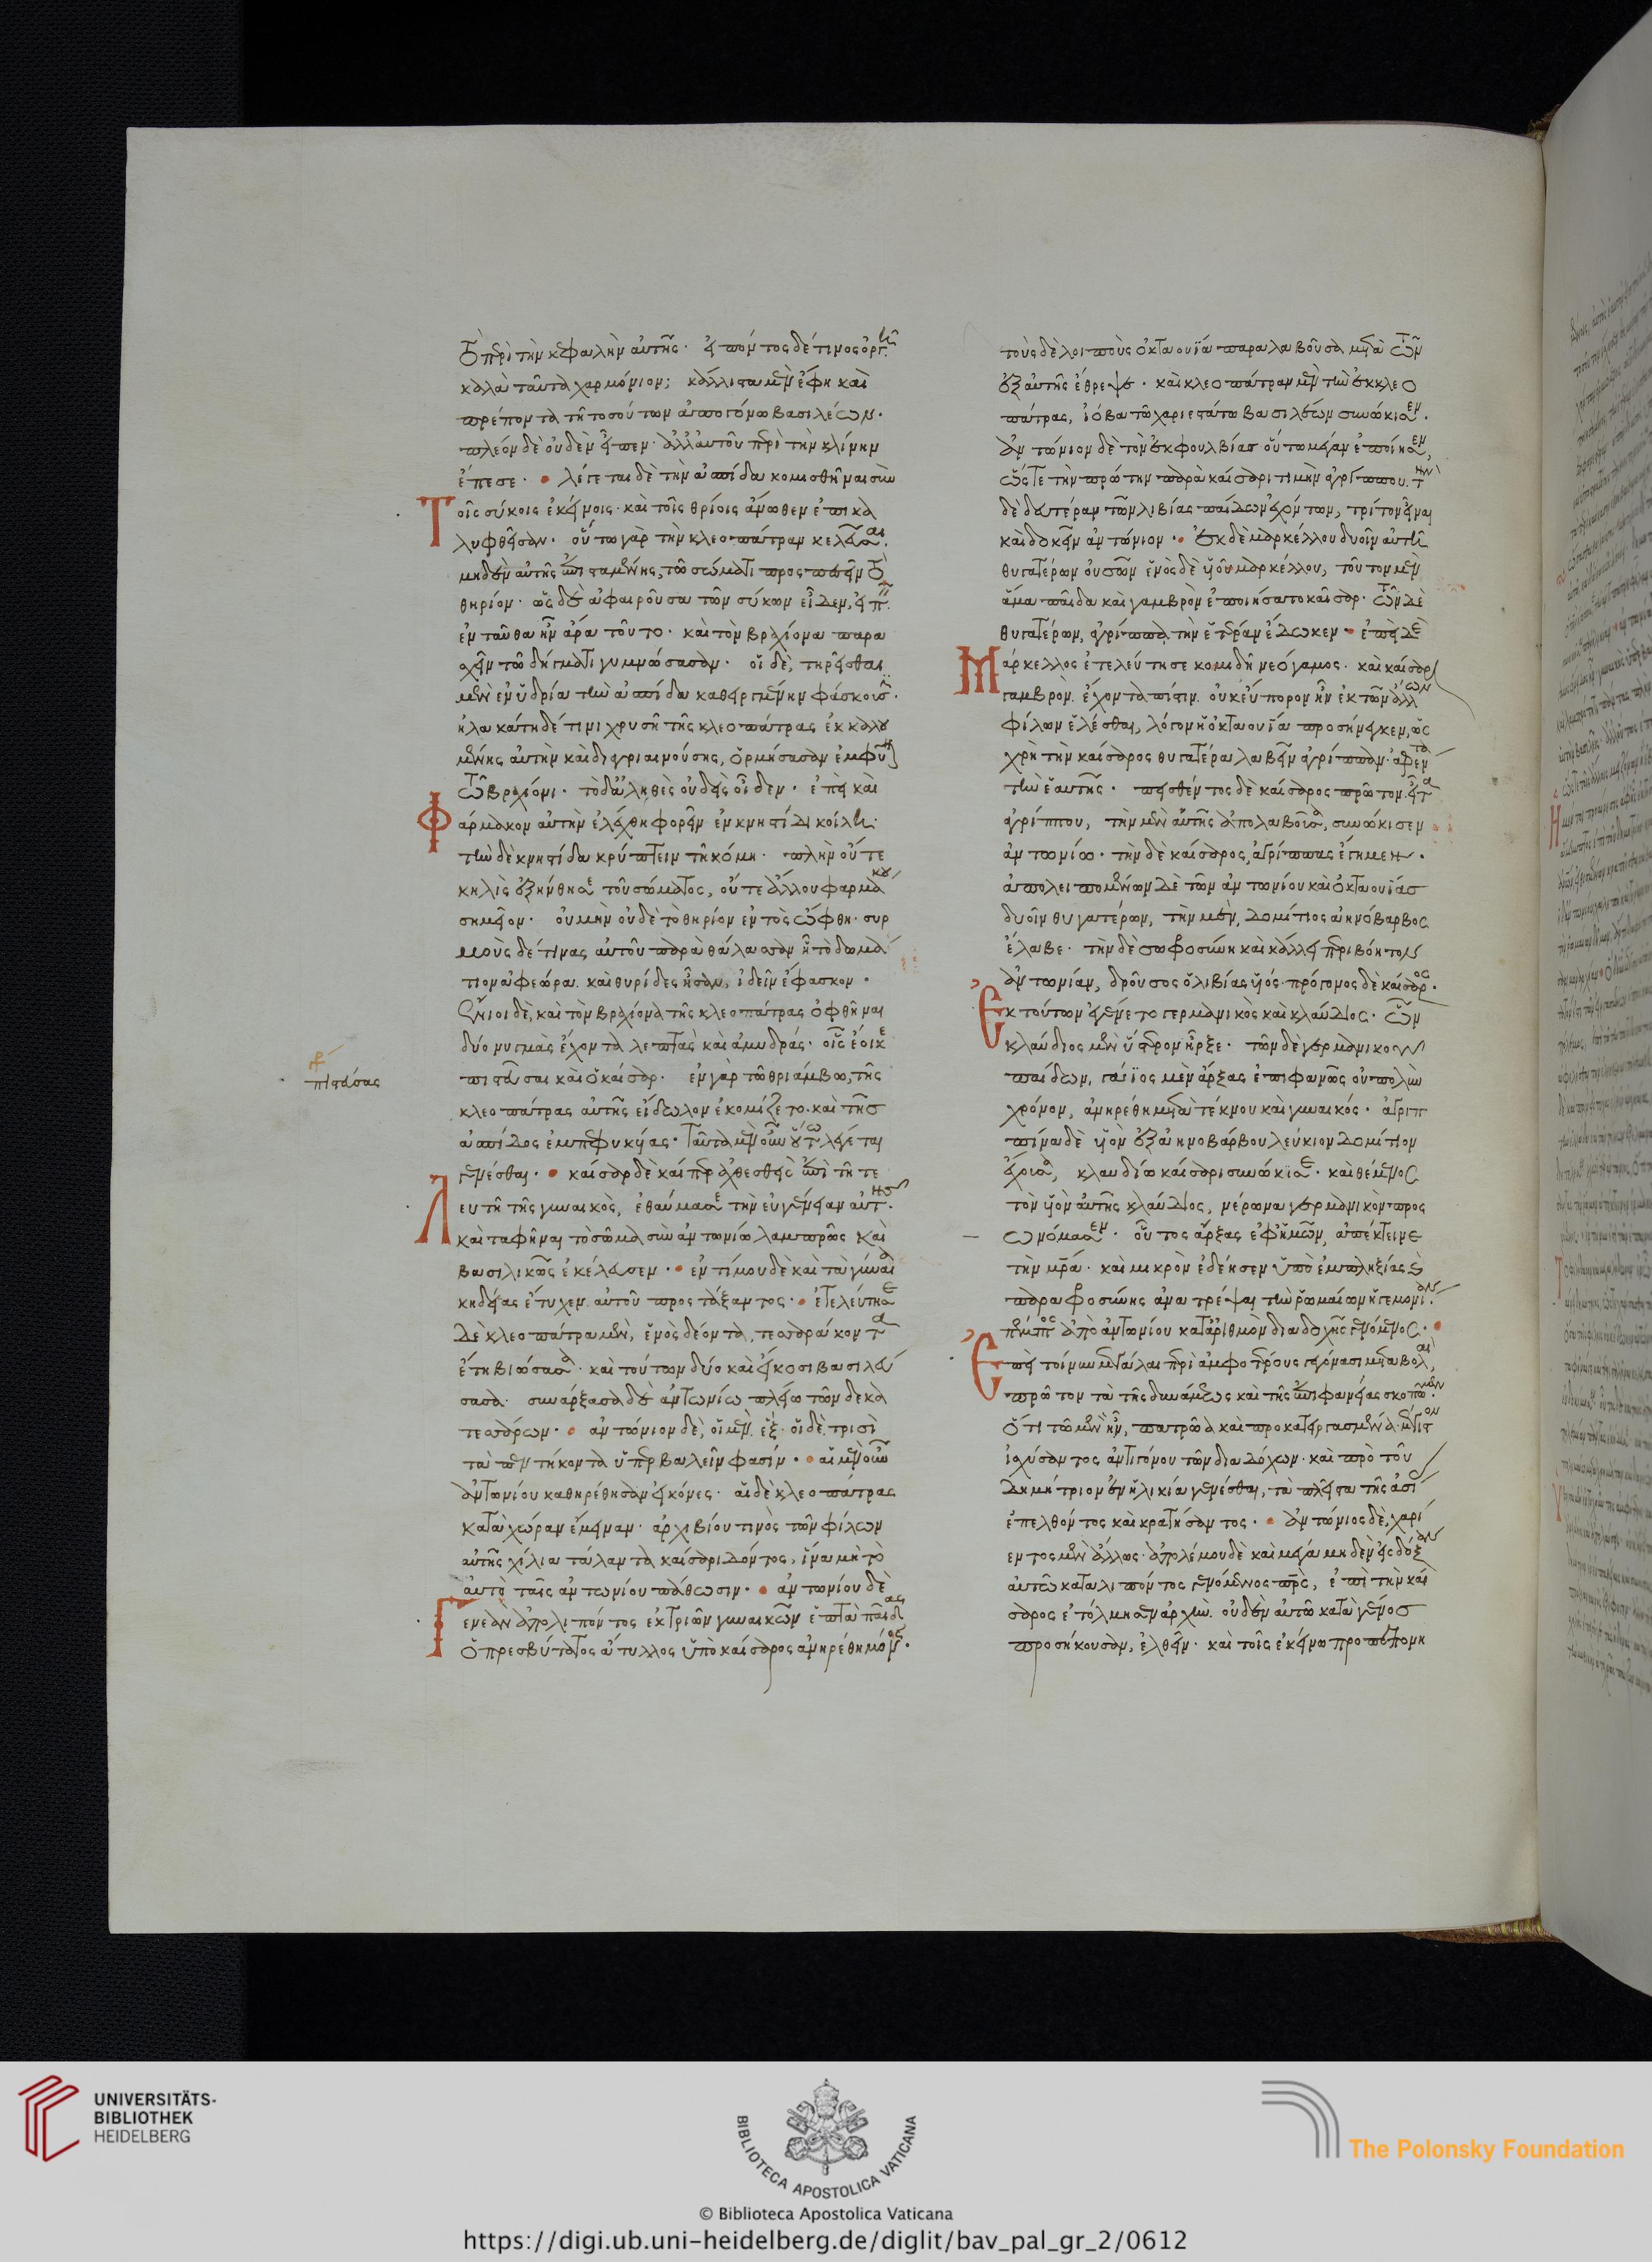 τὸ περὶ τὴν κεφαλὴν αὐτῆς· εἰπόντος δέ τινος ὀργῇ
καλὰ ταῦτα χαρμόνιον; κάλλιστα μὲν ἔφη καὶ
πρέποντα τῇ τοσούτων ἀπογόνω βασιλέων·
πλέον δὲ οὐδὲν εἶπεν· ἀλλ' αὐτοῦ περὶ τὴν κλίνην
ἔπεσε· λέγεται δὲ τὴν ἀσπίδα κομισθῆναι σὺν
Τοῖς σύκοις ἐκείνοις· καὶ τοῖς θρίοις ἄνωθεν ἐπικα
λυφθεῖσαν· οὕτω γὰρ τὴν κλεοπάτραν κελεῦσαι·
μηδὲν αὐτῆς ἐπισταμένης, τῶ σώματι προσπεσεῖν τὸ
θηρίον· ὡς δὲ ἀφαιροῦσα τῶν σύκων εἶδεν, εἰπεῖν·
ἐνταῦθα ἦν ἄρα τοῦτο· καὶ τὸν βραχίονα παρα
σχεῖν τῶ δήγματι γυμνώσασαν· οἱ δὲ, τηρεῖσθαι
μὲν ἐν ὑδρία τὴν ἀσπίδα καθειργμένην φάσκουσιν·
ἠλακάτη δέ τινι χρυσῆ τῆς κλεοπάτρας ἐκκαλου
μένης αὐτὴν καὶ διαγριαινούσης, ὁρμήσασαν ἐμφῦναι
τῶ βραχίονι· τὸ δ' ἀληθὲς οὐδεὶς οἶδεν· ἐπεὶ καὶ
Φάρμακον αὐτὴν ἐλέχθη φορεῖν ἐν κνηστίδι κοίλη·
τὴν δὲ κνηστίδα κρύπτειν τῆ κόμη· πλὴν οὔτε
κηλὶς ἐξήνθησε τοῦ σώματος, οὔτε ἄλλου φαρμάκου
σημεῖον· οὐ μὴν οὐδὲ τὸ θηρίον ἐντὸς ὤφθη· συρ
μοὺς δέ τινας αὐτοῦ παρὰ θάλασσαν ἧ τὸ δωμά
τιον ἀφεώρα καὶ θυρίδες ἦσαν, ἰδεῖν ἔφασκον·
Ἔνιοι δὲ, καὶ τὸν βραχίονα τῆς κλεοπάτρας ὀφθῆναι
δύο νυγμὰς ἔχοντα λεπτὰς καὶ ἀμυδράς· οἷς ἔοικε
πιστεῦσαι καὶ ὁ καίσαρ· ἐν γὰρ τῶ θριάμβω, τῆς
κλεοπάτρας αὐτῆς εἴδωλον ἐκομίζετο· καὶ τῆς
ἀσπίδος ἐμπεφυκυίας· ταῦτα μὲν οὖν οὕτω λέγεται
γενέσθαι· καίσαρ δὲ καίπερ ἀχθεσθεὶς ἐπὶ τῆ τε
Λευτῆ τῆς γυναικὸς, ἐθαύμασε τὴν εὐγένειαν αὐτῆς·
καὶ ταφῆναι τὸ σῶμα σὺν ἀντωνίω λαμπρῶς καὶ
βασιλικῶς ἐκέλευσεν· ἐντίμου δὲ καὶ τὰ γύναια
κηδείας ἔτυχεν αὐτοῦ προστάξαντος· ἐτελεύτησε
δὲ κλεοπάτρα μὲν, ἑνὸς δέοντα, τεσσαράκοντα
ἔτη βιώσασα· καὶ τούτων δύο καὶ εἴκοσι βασιλεύ
σασα· συνάρξασα δὲ ἀντωνίω πλείω τῶν δεκα
τεσσάρων· ἀντώνιον δὲ, οἱ μὲν ἓξ· οἱ δὲ, τρισὶ
τὰ πεντήκοντα ὑπερβαλεῖν φασίν· αἱ μὲν οὖν
ἀντωνίου καθηρέθησαν εἰκόνες· αἱ δὲ κλεοπάτρας
κατὰ χώραν ἔμειναν· ἀρχιβίου τινὸς τῶν φίλων
αὐτῆς χίλια τάλαντα καίσαρι δόντος, ἵνα μὴ τὸ
αὐτὸ ταῖς ἀντωνίου πάθωσιν· ἀντωνίου δὲ
Γενεὰν ἀπολιπόντος ἐκ τριῶν γυναικῶν ἑπτὰ παῖδας
ὁ πρεσβύτατος ἄντυλλος ὑπὸ καίσαρος ἀνηρέθη μόνος·
πιστεύσας
τοὺς δὲ λοιποὺς ὀκταουΐα παραλαβοῦσα μετὰ τῶν
ἐξ αὐτῆς ἔθρεψε· καὶ κλεοπάτραν μὲν τὴν ἐκ κλεο
πάτρας, ἰόβα τῶ χαριεστάτω βασιλέων συνώκισεν·
ἀντώνιον δὲ τὸν ἐκ φουλβίας οὕτω μέγαν ἐποίησεν,
ὥστε τὴν πρώτην παρὰ καίσαρι τιμὴν ἀγρίππου· τὴν
δὲ δευτέραν τῶν λιβίας παίδων ἐχόντων, τρίτον εἶναι
καὶ δοκεῖν ἀντώνιον· ἐκ δὲ μαρκέλλου δυοῖν αὐτῆ
θυγατέρων οὐσῶν ἑνὸς δὲ υἱοῦ μαρκέλλου, τοῦτον μὲν
ἅμα παῖδα καὶ γαμβρὸν ἐποιήσατο καῖσαρ· τῶν δὲ
θυγατέρων, ἀγρίππα τὴν ἑτέραν ἔδωκεν· ἐπεὶ δὲ
Μάρκελλος ἐτελεύτησε κομιδῆ νεόγαμος· καὶ καίσαρι
γαμβρὸν ἔχοντα πίστιν οὐκ εὔπορον ἦν ἐκ τῶν ἄλλων
φίλων ἑλέσθαι, λόγον ἡ ὀκταουΐα προσήνεγκεν, ὡς
χρὴ τὴν καίσαρος θυγατέρα λαβεῖν ἀγρίππαν· ἀφέντα
τὴν ἑαυτῆς· πεισθέντος δὲ καίσαρος πρῶτον, εἶτα
ἀγρίππου, τὴν μὲν αὐτῆς ἀπολαβοῦσα, συνώκισεν
ἀντωνίω· τὴν δὲ καίσαρος, ἀγρίππας ἔγημεν·
ἀπολειπομένων δὲ τῶν ἀντωνίου καὶ ὀκταουΐας
δυοῖν θυγατέρων, τὴν μὲν, δομίτιος ἀηνόβαρβος
ἔλαβε· τὴν δὲ σωφροσύνη καὶ κάλλει περιβόητον
ἀντωνίαν, δροῦσος ὁ λιβίας υἱός· πρόγονος δὲ καίσαρος·
Ἐκ τούτων ἐγένετο γερμανικὸς καὶ κλαύδιος· ὧν
κλαύδιος μὲν ὕστερον ἦρξε· τῶν δὲ γερμανικοῦ
παίδων, γάϊος μὲν ἄρξας ἐπιφανῶς οὐ πολὺν
χρόνον, ἀνηρέθη μετὰ τέκνου καὶ γυναικός· ἀγριπ
πίνα δὲ υἱὸν ἐξ ἀηνοβάρβου λεύκιον δομίτιον
ἔχουσα, κλαυδίω καίσαρι συνώκϊσε· καὶ θέμενος
τὸν υἱὸν αὐτῆς κλαύδιος, νέρωνα γερμανικὸν προς
ωνόμασεν· οὗτος ἄρξας ἐφ' ἡμῶν, ἀπέκτεινε
τὴν μητέρα· καὶ μικρὸν ἐδέησεν ὑπὸ ἐμπληξίας καὶ
παραφροσύνης ἀνατρέψαι τὴν ῥωμαίων ἡγεμονίαν·
πέμπτος ἀπὸ ἀντωνίου κατ' ἀριθμὸν διαδοχῆς γενόμενος·
Ἐπεὶ τοίνυν μεγάλαι περὶ ἀμφοτέρους γεγόνασι μεταβολαὶ,
πρῶτον τὰ τῆς δυνάμεως καὶ τῆς ἐπιφανείας σκοπῶμεν·
ὅτι τῶ μὲν ἦν, πατρῶα καὶ προκατειργασμένα μέγιστον
ἰσχύσαντος ἀντιγόνου τῶν διαδόχων· καὶ πρὸ τοῦ
δημήτριον ἐν ἡλικία γενέσθαι, τὰ πλεῖστα τῆς ἀσί
ἐπελθόντος καὶ κρατήσαντος· ἀντώνιος δὲ, χαρί
εντος μὲν ἄλλως· ἀπολέμου δὲ καὶ μέγα μηδὲν εἰς δόξαν
αὐτῶ καταλιπόντος γενόμενος πατρὸς, ἐπὶ τὴν καί
σαρος ἐτόλμησεν ἀρχὴν οὐδὲν αὐτῶ κατὰ γένος
προσήκουσαν, ἐλθεῖν· καὶ τοῖς ἐκείνω προπεπονη
UNIVERSITÄTS-
BIBLIOTHEK
HEIDELBERG
BIBLIOTECA APOSTOLICA VATICANA
The Polonsky Foundation
© Biblioteca Apostolica Vaticana
https://digi.ub.uni-heidelberg.de/diglit/bav_pal_gr_2/0612